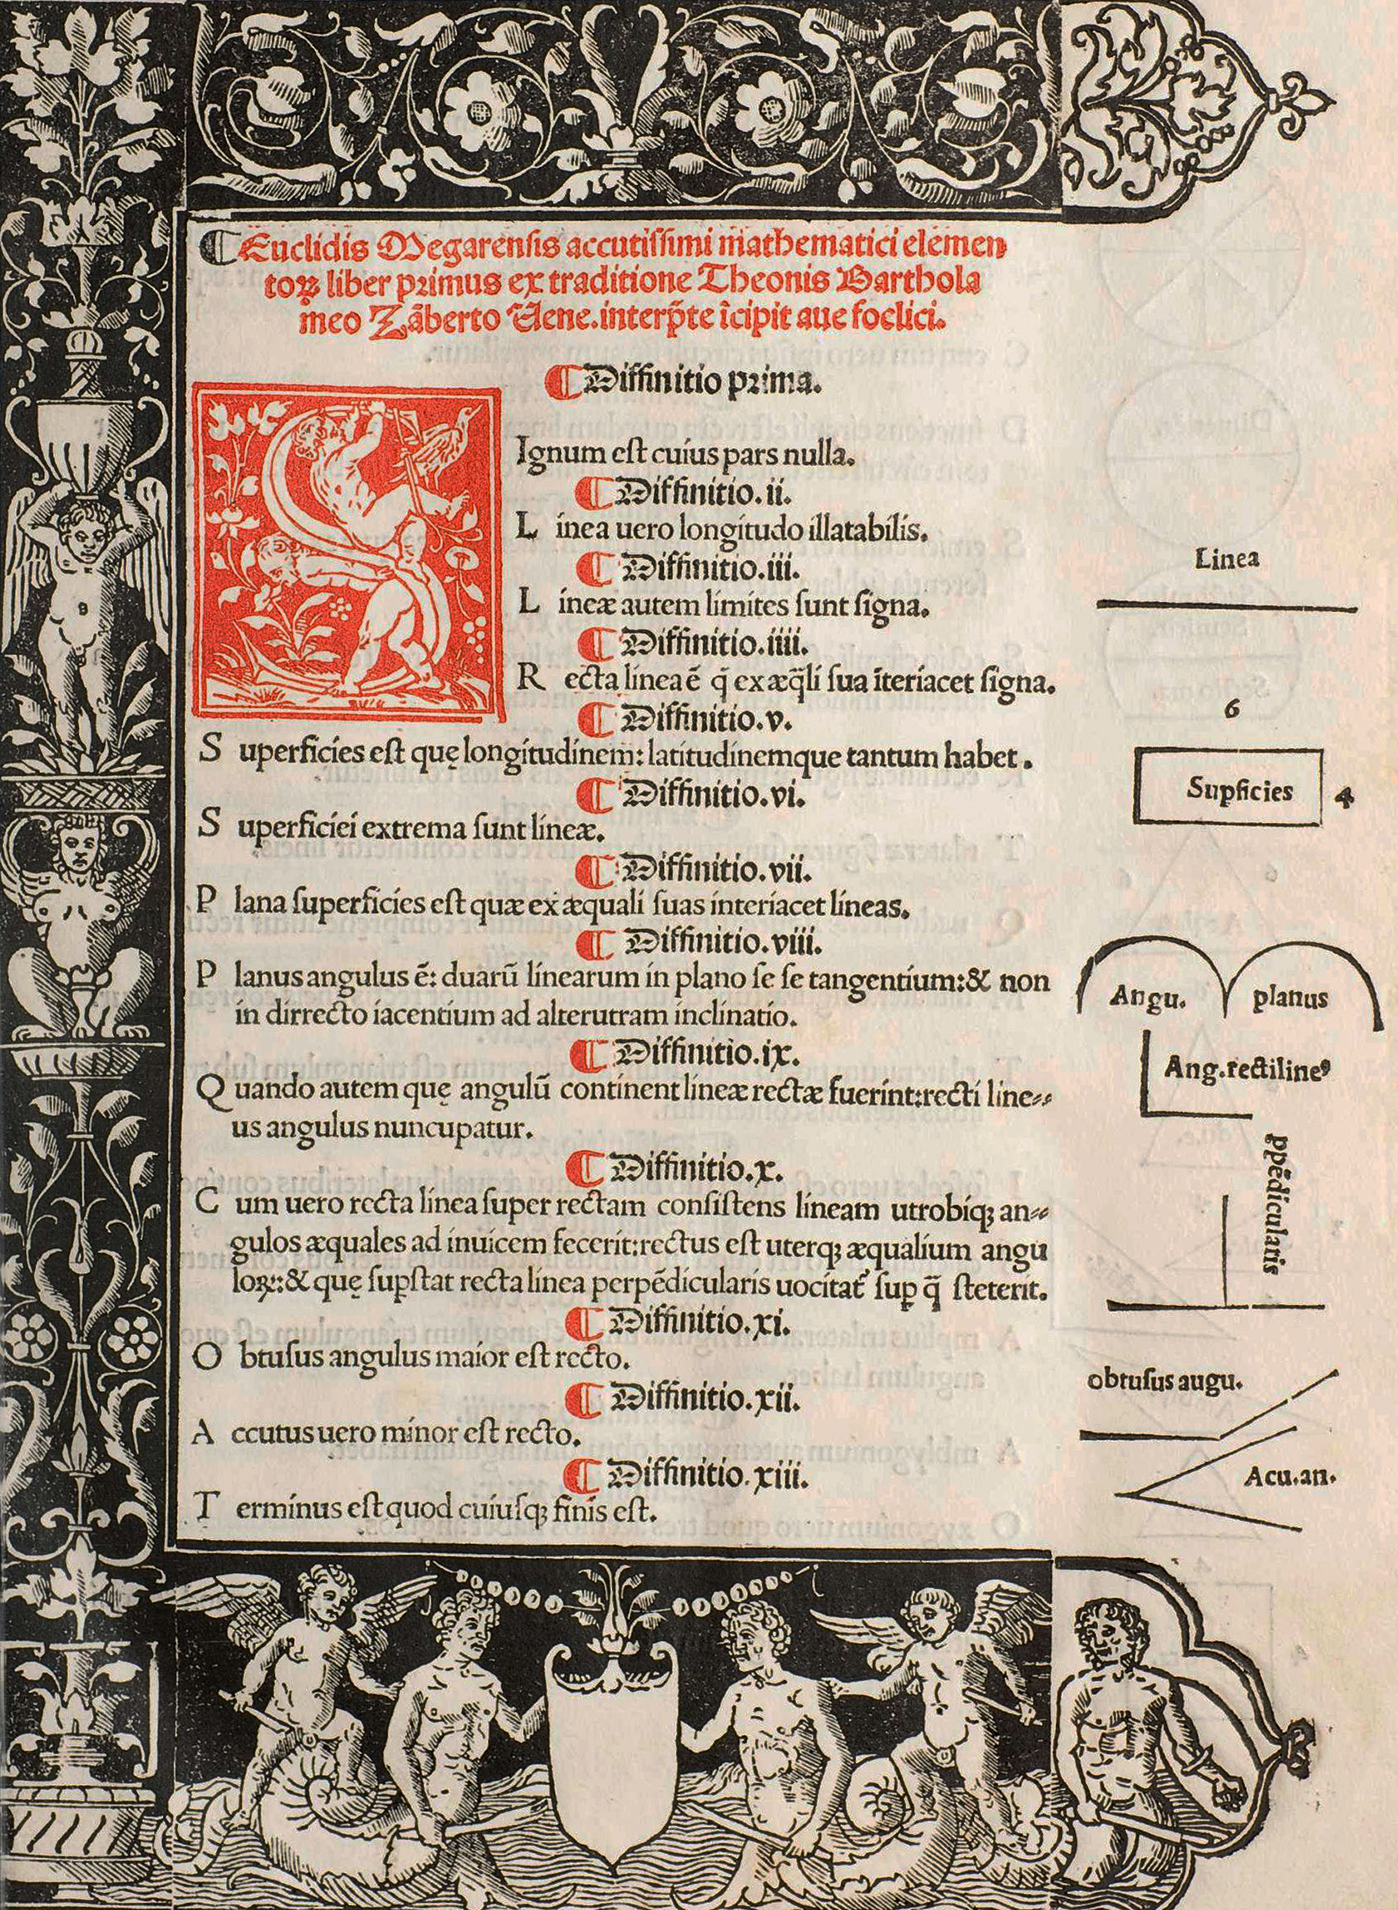 Euclidis Megarensis accutissimi mathematici elemen
toꝝ liber primus ex traditione Theonis Barthola
meo Zāberto Uene. interp̄te īcipit aue foelici.
Diffinitio prima.
SIgnum est cuius pars nulla.
Diffinitio.ii.
Linea uero longitudo illatabilis.
Diffinitio.iii.
Lineæ autem limites sunt signa.
Diffinitio.iiii.
Recta linea ē q̄ ex æq̄li sua īteriacet signa.
Diffinitio.v.
Superficies est quę longitudinem: latitudinemque tantum habet.
Diffinitio.vi.
Superficiei extrema sunt lineæ.
Diffinitio.vii.
Plana superficies est quæ ex æquali suas interiacet lineas.
Diffinitio.viii.
Planus angulus ē: duarū linearum in plano se se tangentium:& non
in dirrecto iacentium ad alterutram inclinatio.
Diffinitio.ix.
Quando autem quę angulū continent lineæ rectæ fuerint:recti line⸗
us angulus nuncupatur.
Diffinitio.x.
Cum uero recta linea super rectam consistens lineam utrobiq; an⸗
gulos æquales ad inuicem fecerit:rectus est uterq; æqualium angu
loꝝ:& quę sup̱stat recta linea perpēdicularis uocitat᷑ sup̱ q̄ steterit.
Diffinitio.xi.
Obtusus angulus maior est recto.
Diffinitio.xii.
Accutus uero minor est recto.
Diffinitio.xiii.
Terminus est quod cuiusq; finis est.
Linea
6
Sup̱ficies 4
Angu. planus
Ang.rectilineꝰ
ppēdicularis
obtusus augu.
Acu.an.